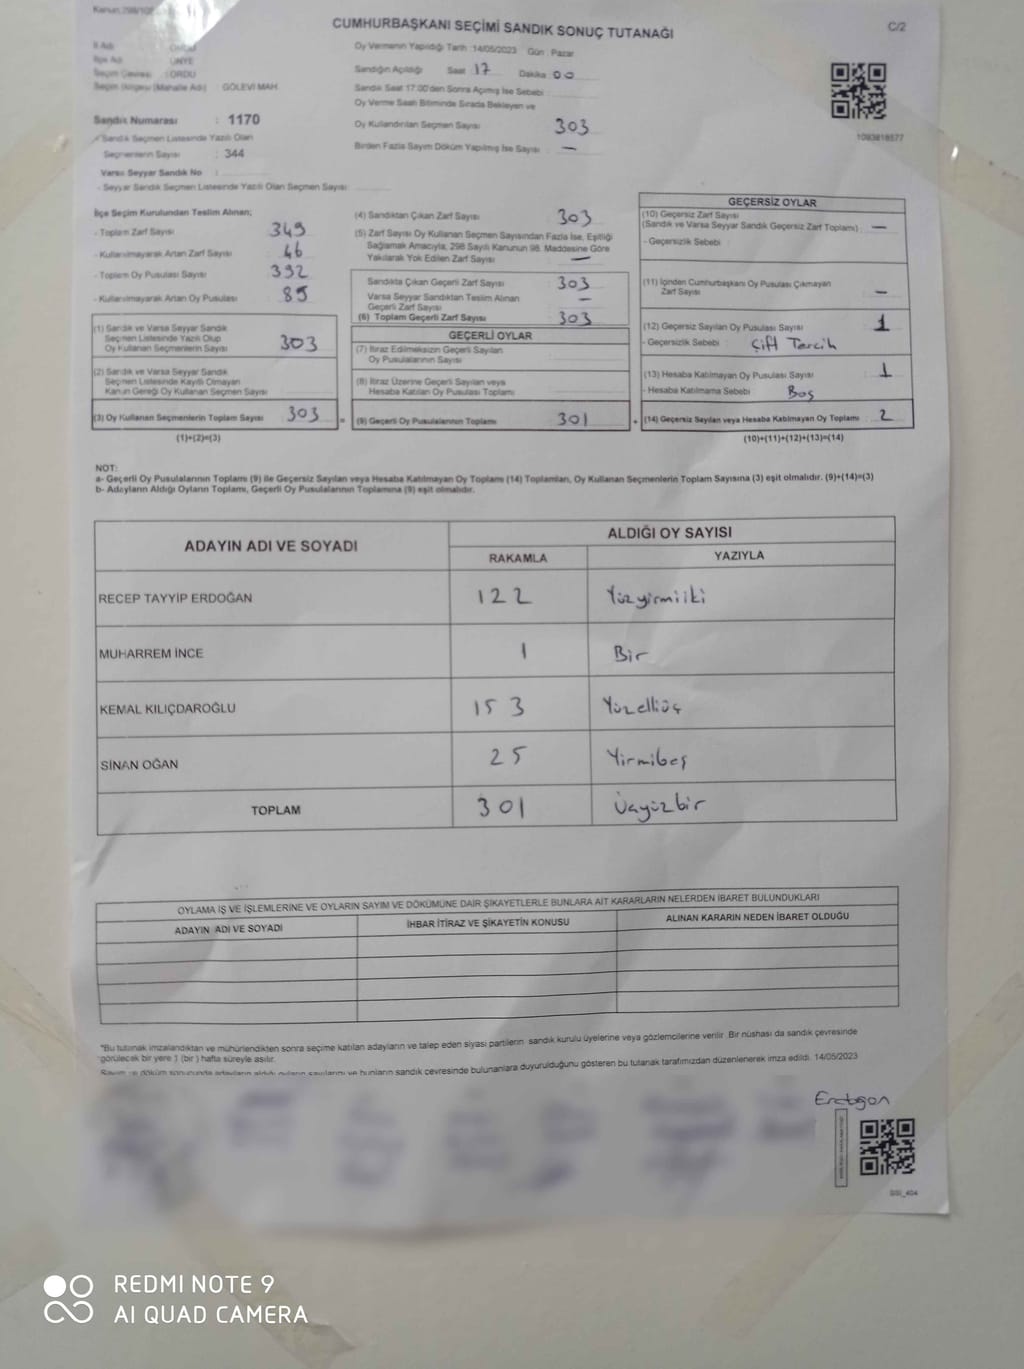 CUMHURBAŞKANI SEÇİMİ SANDIK SONUÇ TUTANAĞI
C/2
İl Adı : ORDU
İlçe Adı : ÜNYE
Seçim Çevresi : ORDU
Seçim Bölgesi (Mahalle Adı) : GÖLEVİ MAH.
Sandık Numarası : 1170
- Sandık Seçmen Listesinde Yazılı Olan
Seçmenlerin Sayısı : 344
Varsa Seyyar Sandık No :
- Seyyar Sandık Seçmen Listesinde Yazılı Olan Seçmen Sayısı:
Oy Vermenin Yapıldığı Tarih :14/05/2023 Gün : Pazar
Sandığın Açıldığı Saat : 17 Dakika : 00
Sandık Saat 17:00'den Sonra Açılmış İse Sebebi :
Oy Verme Saati Bitiminde Sırada Bekleyen ve
Oy Kullandırılan Seçmen Sayısı : 303
Birden Fazla Sayım Döküm Yapılmış İse Sayısı : —
1093818577
İlçe Seçim Kurulundan Teslim Alınan;
- Toplam Zarf Sayısı : 349
- Kullanılmayarak Artan Zarf Sayısı : 46
- Toplam Oy Pusulası Sayısı : 392
- Kullanılmayarak Artan Oy Pusulası : 89
(1) Sandık ve Varsa Seyyar Sandık
Seçmen Listesinde Yazılı Olup
Oy Kullanan Seçmenlerin Sayısı : 303
(2) Sandık ve Varsa Seyyar Sandık
Seçmen Listesinde Kayıtlı Olmayan
Kanun Gereği Oy Kullanan Seçmen Sayısı :
(3) Oy Kullanan Seçmenlerin Toplam Sayısı : 303 =
(1)+(2)=(3)
(4) Sandıktan Çıkan Zarf Sayısı : 303
(5) Zarf Sayısı Oy Kullanan Seçmen Sayısından Fazla İse, Eşitliği
Sağlamak Amacıyla, 298 Sayılı Kanunun 98. Maddesine Göre
Yakılarak Yok Edilen Zarf Sayısı : —
Sandıkta Çıkan Geçerli Zarf Sayısı : 303
Varsa Seyyar Sandıktan Teslim Alınan
Geçerli Zarf Sayısı : —
(6) Toplam Geçerli Zarf Sayısı : 303
GEÇERLİ OYLAR
(7) İtiraz Edilmeksizin Geçerli Sayılan
Oy Pusulalarının Sayısı :
(8) İtiraz Üzerine Geçerli Sayılan veya
Hesaba Katılan Oy Pusulası Toplamı :
(9) Geçerli Oy Pusulalarının Toplamı : 301 +
GEÇERSİZ OYLAR
(10) Geçersiz Zarf Sayısı
(Sandık ve Varsa Seyyar Sandık Geçersiz Zarf Toplamı) : —
- Geçersizlik Sebebi :
(11) İçinden Cumhurbaşkanı Oy Pusulası Çıkmayan
Zarf Sayısı : —
(12) Geçersiz Sayılan Oy Pusulası Sayısı : 1
- Geçersizlik Sebebi : Çift Tercih
(13) Hesaba Katılmayan Oy Pusulası Sayısı : 1
- Hesaba Katılmama Sebebi : Boş
(14) Geçersiz Sayılan veya Hesaba Katılmayan Oy Toplamı : 2
(10)+(11)+(12)+(13)=(14)
NOT:
a- Geçerli Oy Pusulalarının Toplamı (9) ile Geçersiz Sayılan veya Hesaba Katılmayan Oy Toplamı (14) Toplamları, Oy Kullanan Seçmenlerin Toplam Sayısına (3) eşit olmalıdır. (9)+(14)=(3)
b- Adayların Aldığı Oyların Toplamı, Geçerli Oy Pusulalarının Toplamına (9) eşit olmalıdır.
ADAYIN ADI VE SOYADI
ALDIĞI OY SAYISI
RAKAMLA YAZIYLA
RECEP TAYYİP ERDOĞAN 122 Yüzyirmiiki
MUHARREM İNCE 1 Bir
KEMAL KILIÇDAROĞLU 153 Yüzelliüç
SİNAN OĞAN 25 Yirmibeş
TOPLAM 301 Üçyüzbir
OYLAMA İŞ VE İŞLEMLERİNE VE OYLARIN SAYIM VE DÖKÜMÜNE DAİR ŞİKAYETLERLE BUNLARA AİT KARARLARIN NELERDEN İBARET BULUNDUKLARI
ADAYIN ADI VE SOYADI İHBAR İTİRAZ VE ŞİKAYETİN KONUSU ALINAN KARARIN NEDEN İBARET OLDUĞU
"Bu tutanak imzalandıktan ve mühürlendikten sonra seçime katılan adayların ve talep eden siyasi partilerin sandık kurulu üyelerine veya gözlemcilerine verilir. Bir nüshası da sandık çevresinde
görülecek bir yere 1 (bir ) hafta süreyle asılır.
Sayım ve döküm sonucunda adayların aldığı oyların sayılarını ve bunların sandık çevresinde bulunanlara duyurulduğunu gösteren bu tutanak tarafımızdan düzenlenerek imza edildi. 14/05/2023
SSI_404
REDMI NOTE 9
AI QUAD CAMERA